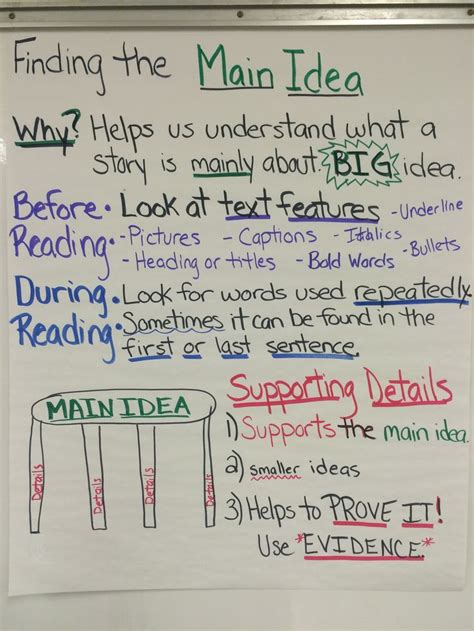 Finding the Main Idea
Why? Helps us understand what a
story is mainly about. BIG idea.
Before • Look at text features - Underline
Reading: - Pictures - Captions - Italics - Bullets
- Heading or titles - Bold Words
During • Look for words used repeatedly.
Reading: • Sometimes it can be found in the
first or last sentence.
MAIN IDEA
Details
Details
Details
Details
Supporting Details
1) Supports the main idea.
2) smaller ideas
3) Helps to PROVE IT!
Use *EVIDENCE.*